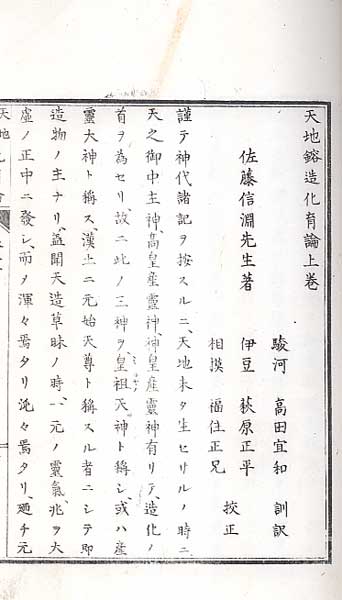 天地鎔造化育論上巻
佐藤信淵先生著
駿河　高田宜和　訓訳
伊豆　萩原正平
相摸　福住正兄
挍正
謹テ神代諸記ヲ按スルニ、天地未タ生セサルノ時ニ
天之御中主神、高皇産靈神、神皇産靈神有リテ、造化ノ
首ヲ為セリ、故ニ此ノ三神ヲ、皇祖天ツ神ト称シ、或ハ産
靈大神ト称ス、漢土ニ元始天尊ト稱スル者ニシテ即
造物ノ主ナリ、蓋聞天造草昧ノ時、一元ノ靈氣、兆ヲ大
虚ノ正中ニ發シ、而ヲ渾々焉タリ沌々焉タリ、廼チ元